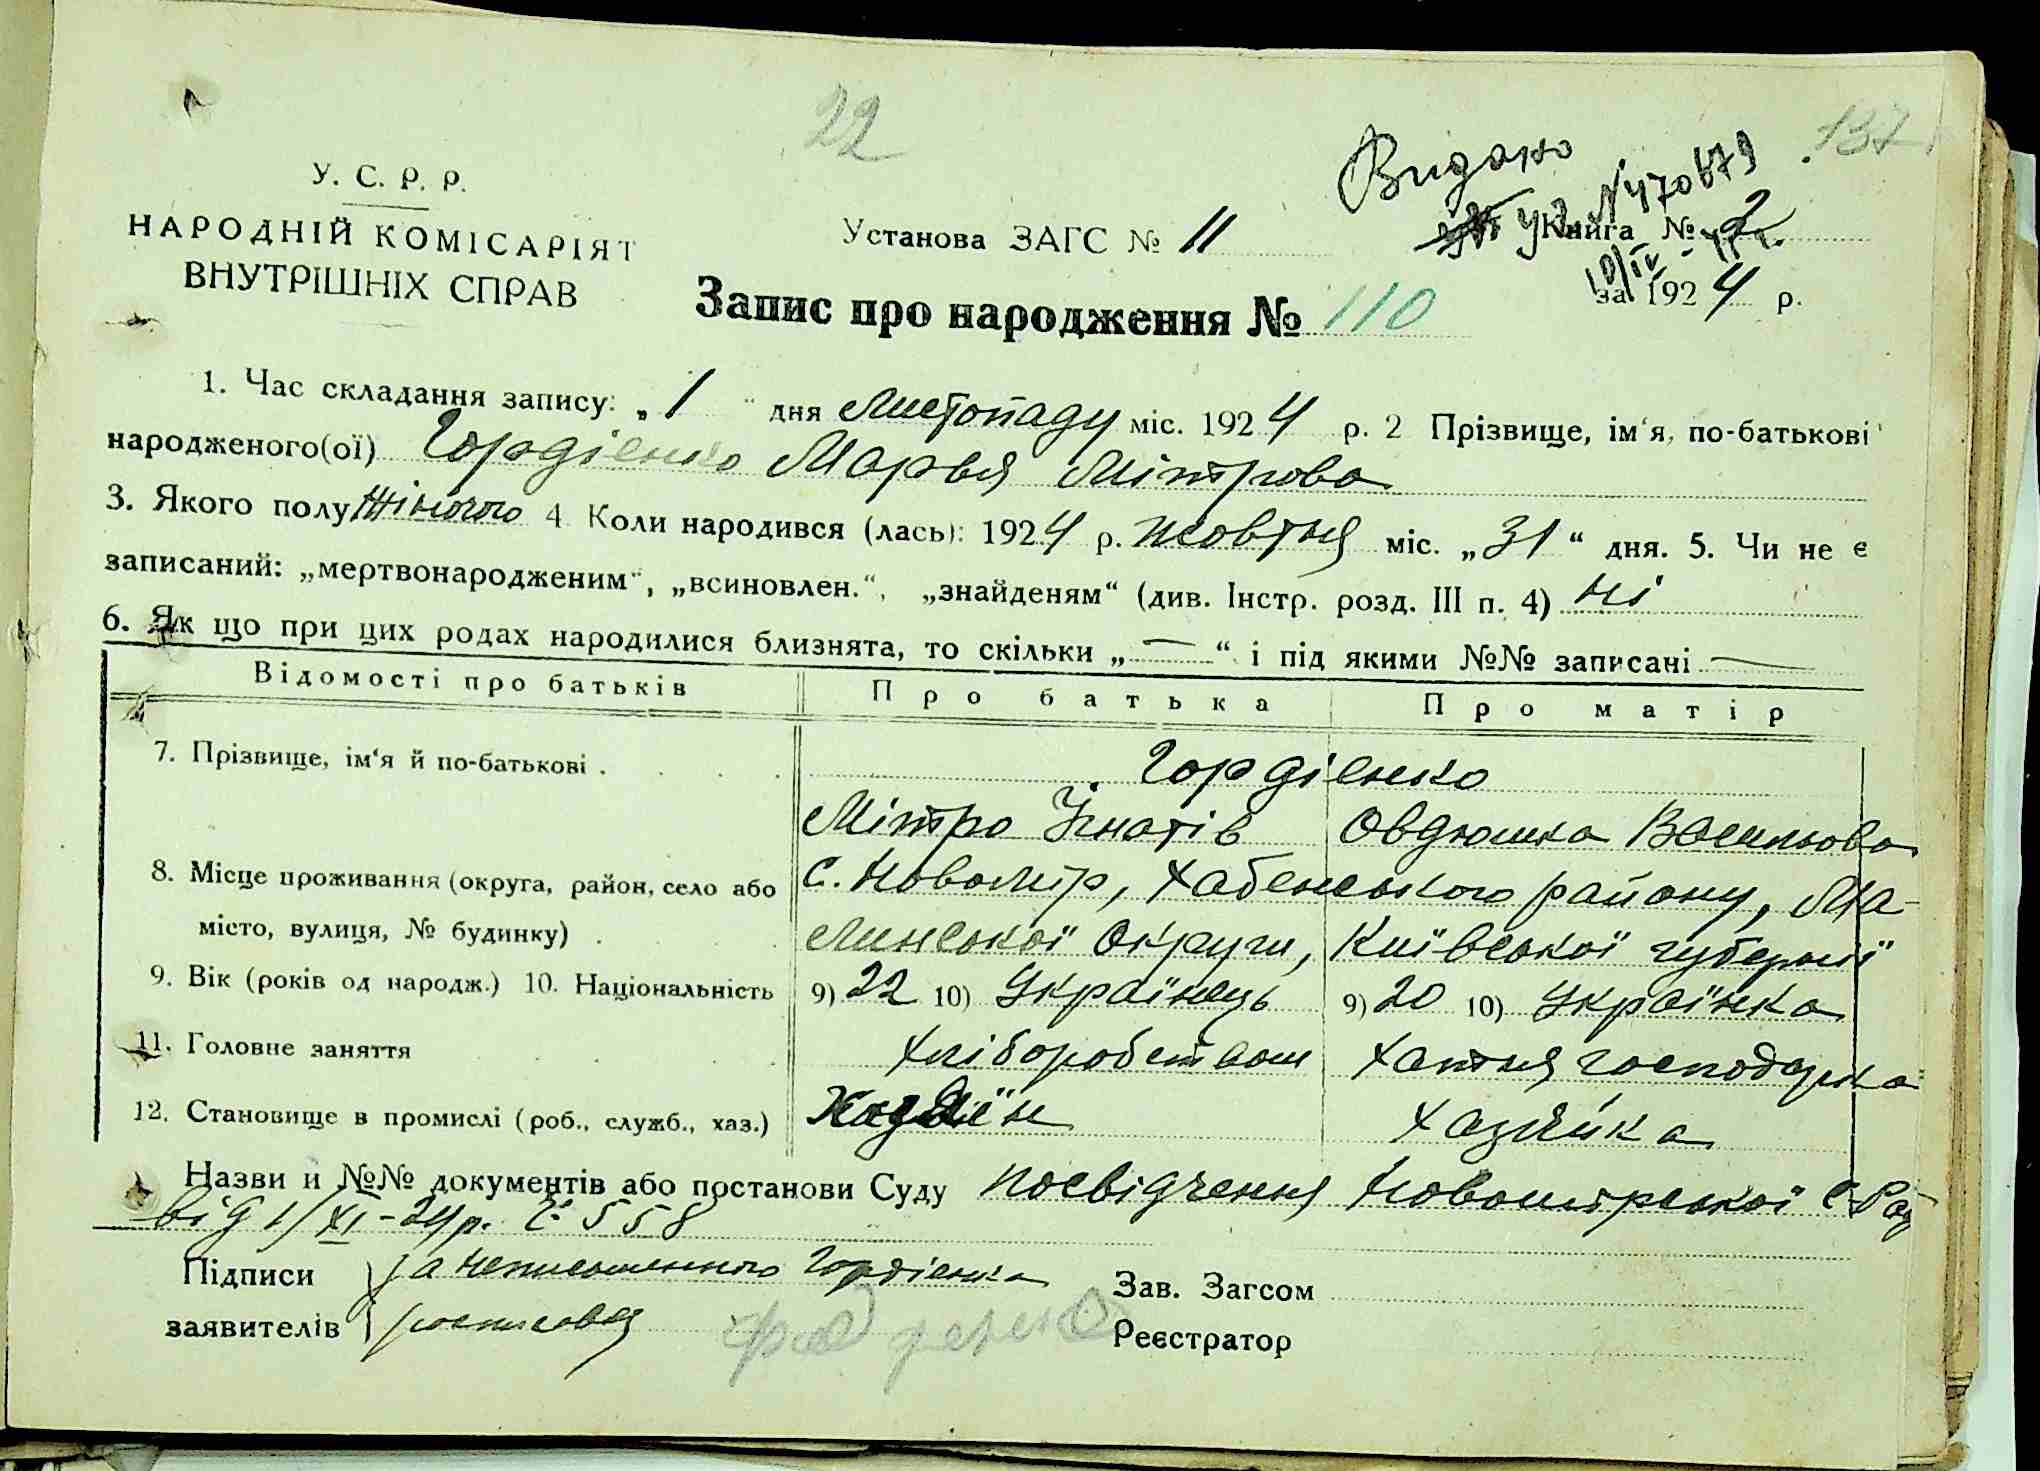 22
137
У. С. Р. Р.
НАРОДНІЙ КОМІСАРІЯТ
ВНУТРІШНІХ СПРАВ
Видано
Установа ЗАГС № 11
Книга № 2
за 1924 р.
Запис про народження № 110
1. Час складання запису: „1“ дня листопаду міс. 1924 р. 2 Прізвище, ім'я, по-батькові
народженого(ої) Гордіенко Марья Мітрова
3. Якого полу жіночого 4 Коли народився (лась): 1924 р. жовтня міс. „31“ дня. 5. Чи не є
записаний: „мертвонародженим“, „всиновлен.“, „знайденям“ (див. Інстр. розд. III п. 4) ні
6. Як що при цих родах народилися близнята, то скільки „—“ і під якими №№ записані —
Відомості про батьків Про батька Про матір
7. Прізвище, ім'я й по-батькові . Гордіенко
Мітро Ігнатів Овдюшка Васильова
8. Місце проживання (округа, район, село або С. Новомір, Хабенського району, Ма-
місто, вулиця, № будинку) . линської Округи, Київської губернії
9. Вік (років од народж.) 10. Національність 9) 22 10) Українець 9) 20 10) Українка
11. Головне заняття хліборобством хатня господарка
12. Становище в промислі (роб., служб., хаз.) Хазяїн хазяйка
Назви й №№ документів або постанови Суду посвідчення Новомірської С-Рад
від 1/XI-24р. № 558
Підписи за неписьменного Гордіенка
заявителів росписався
Зав. Загсом
Реєстратор